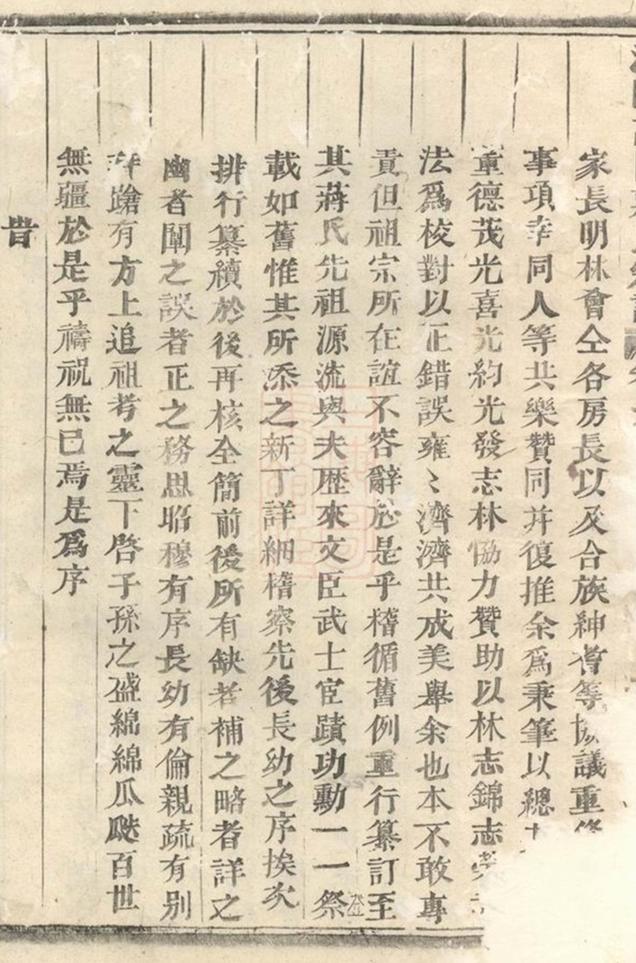 家長明林會仝各房長以及合族紳耆等協議重修
事項幸同人等共樂贊同并復推余爲秉筆以總
重德茂光喜光約光發志林恊力贊助以林志錦志
法爲校對以正錯誤雍〻濟濟共成美舉余也本不敢專
責但祖宗所在誼不容辭於是乎稽循舊例重行纂訂至
其蔣氏先祖源流與夫歷來文臣武士宦蹟功勳一一祭
載如舊惟其所添之新丁詳細稽察先後長幼之序挨次
排行纂續於後再核全簡前後所有缺者補之略者詳之
幽者闡之誤者正之務思昭穆有序長幼有倫親疏有别
蹌有方上追祖考之靈下啓子孫之盛綿綿瓜瓞百世
無疆於是乎禱祝無已焉是爲序
旹